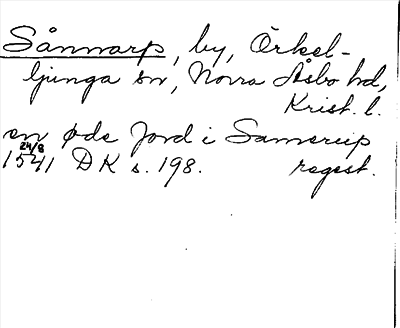 Sånnarp, by, Örkel-
ljunga sn, Norra Åsbo hd,
Krist. l.
en øde Jord i Samerup
24/8
1541 DK s. 198. regest.